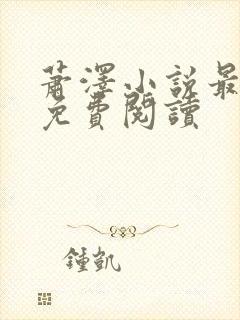 蕭澤小說最
免費閱讀
鍾凱